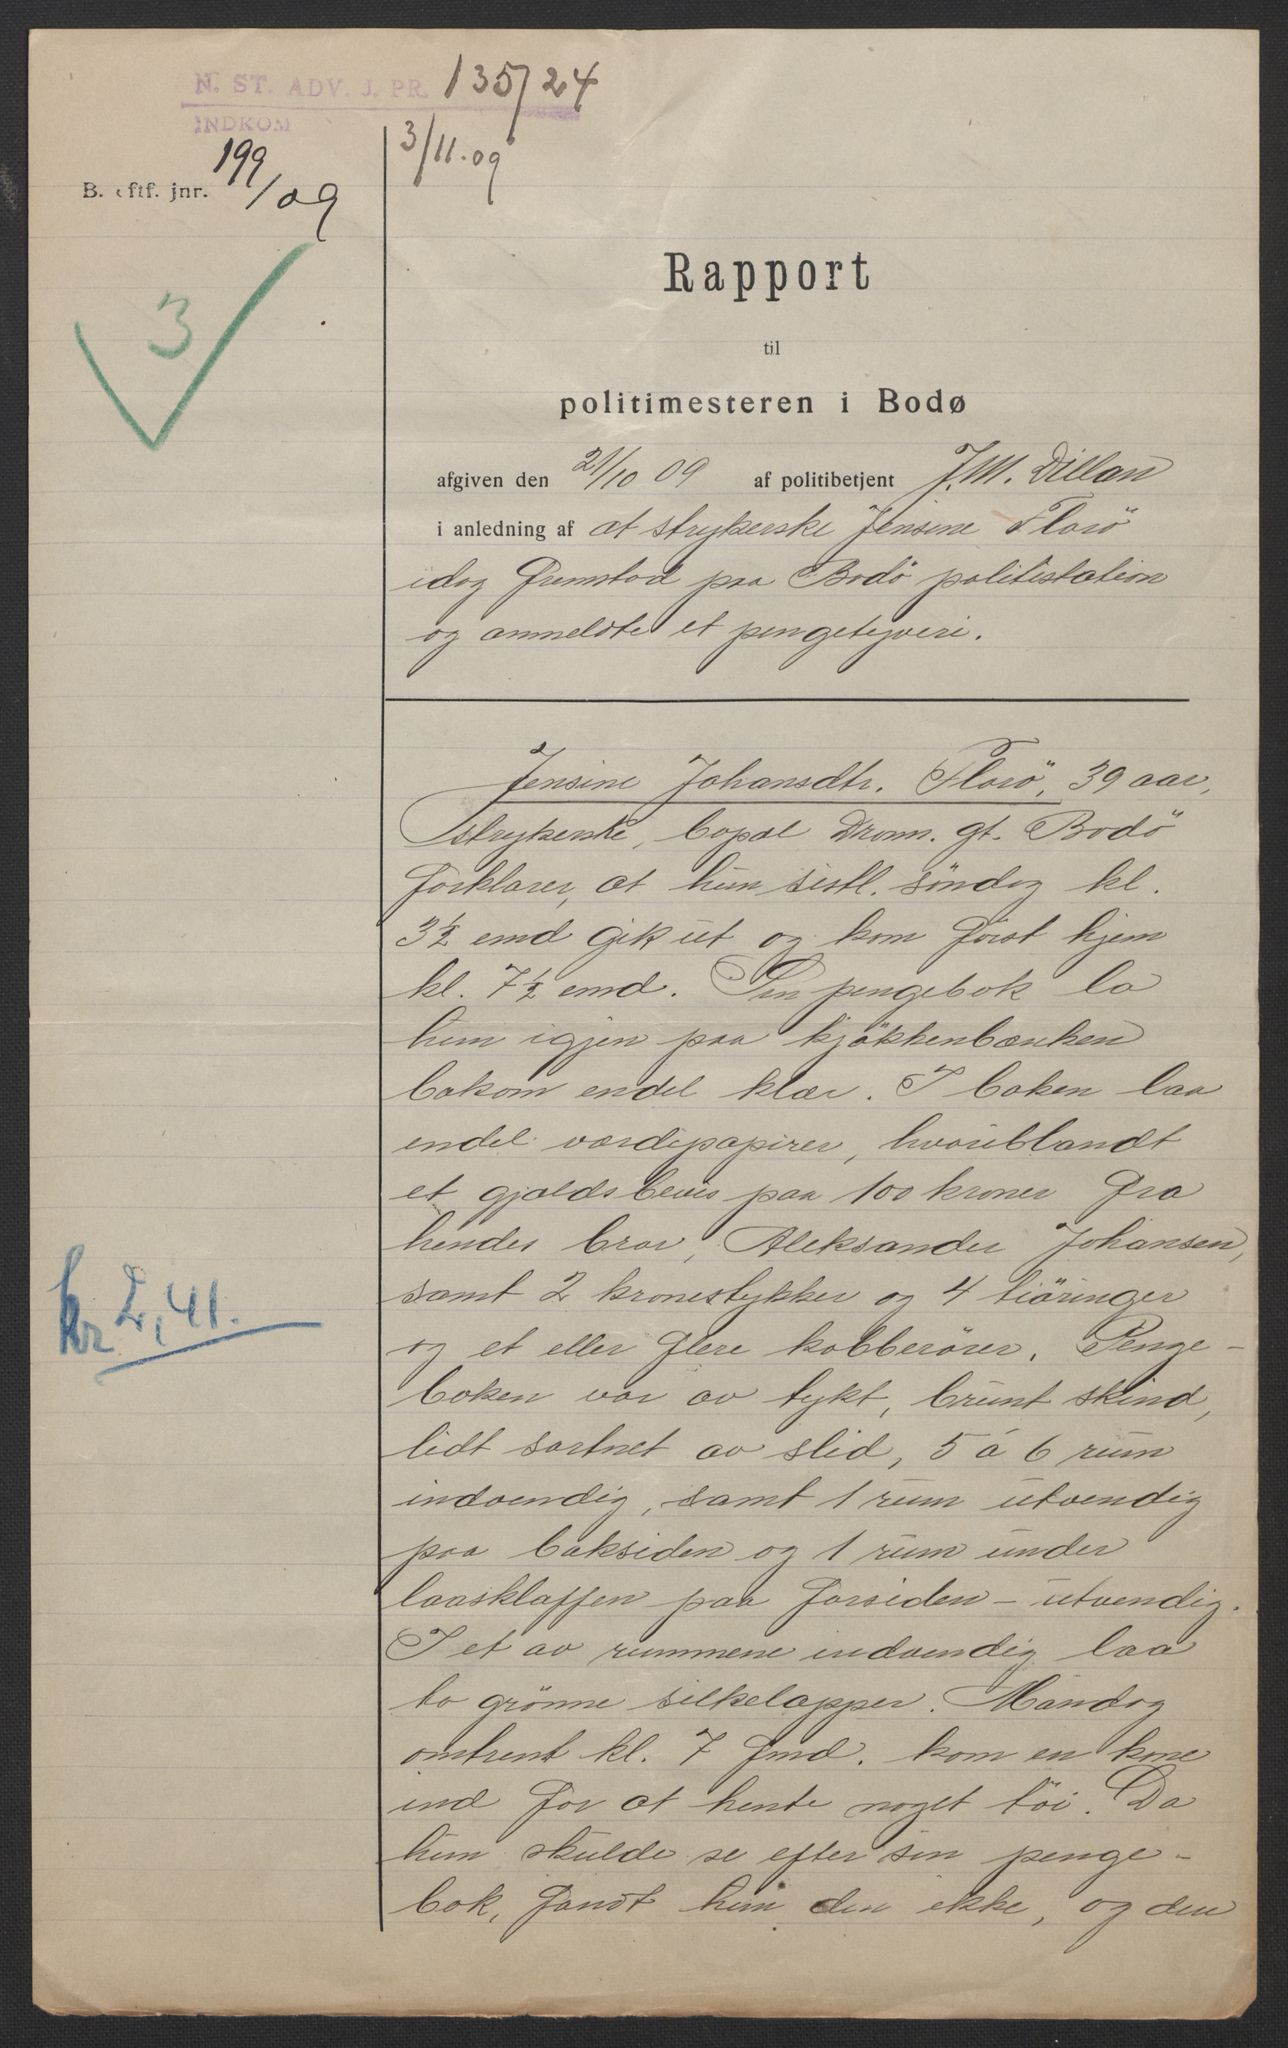 N. ST. ADV. J. PR. 135/24
INDKOM
3/11.09
B. eftf. jnr. 199/09
3
Rapport
til
politimesteren i Bodø
afgiven den 21/10 09 af politibetjent J. M. Dillan
i anledning af at strykerske Jensine Florö
idag fremstod paa Bodö politistation
og anmeldte et pengetyveri.
Jensine Johansdtr. Florö, 39 aar,
strykerske, bopæl Dronn. gt. Bodö
forklarer, at hun sistl. söndag kl.
3½ emd gik ut og kom först hjem
kl. 7½ emd. Sin pengebok la
hun igjen paa kjökkenbænken
bakom endel klær. I boken laa
endel værdipapirer, hvoriblandt
et gjældsbevis paa 100 kroner fra
hendes bror, Aleksander Johansen,
samt 2 kronestykker og 4 tiöringer
kr 2,41.
og et eller flere kobberörer. Penge-
boken var av tykt, brunt skind,
lidt sortnet av slid, 5 á 6 rum
indvendig, samt 1 rum utvendig
paa baksiden og 1 rum under
laasklaffen paa forsiden - utvendig.
I et av rummene indvendig laa
to grönne silkelapper. Mandag
omtrent kl. 7 fmd. kom en kone
ind for at hente noget töi. Da
hun skulde se efter sin penge-
bok, fandt hun den ikke, og den